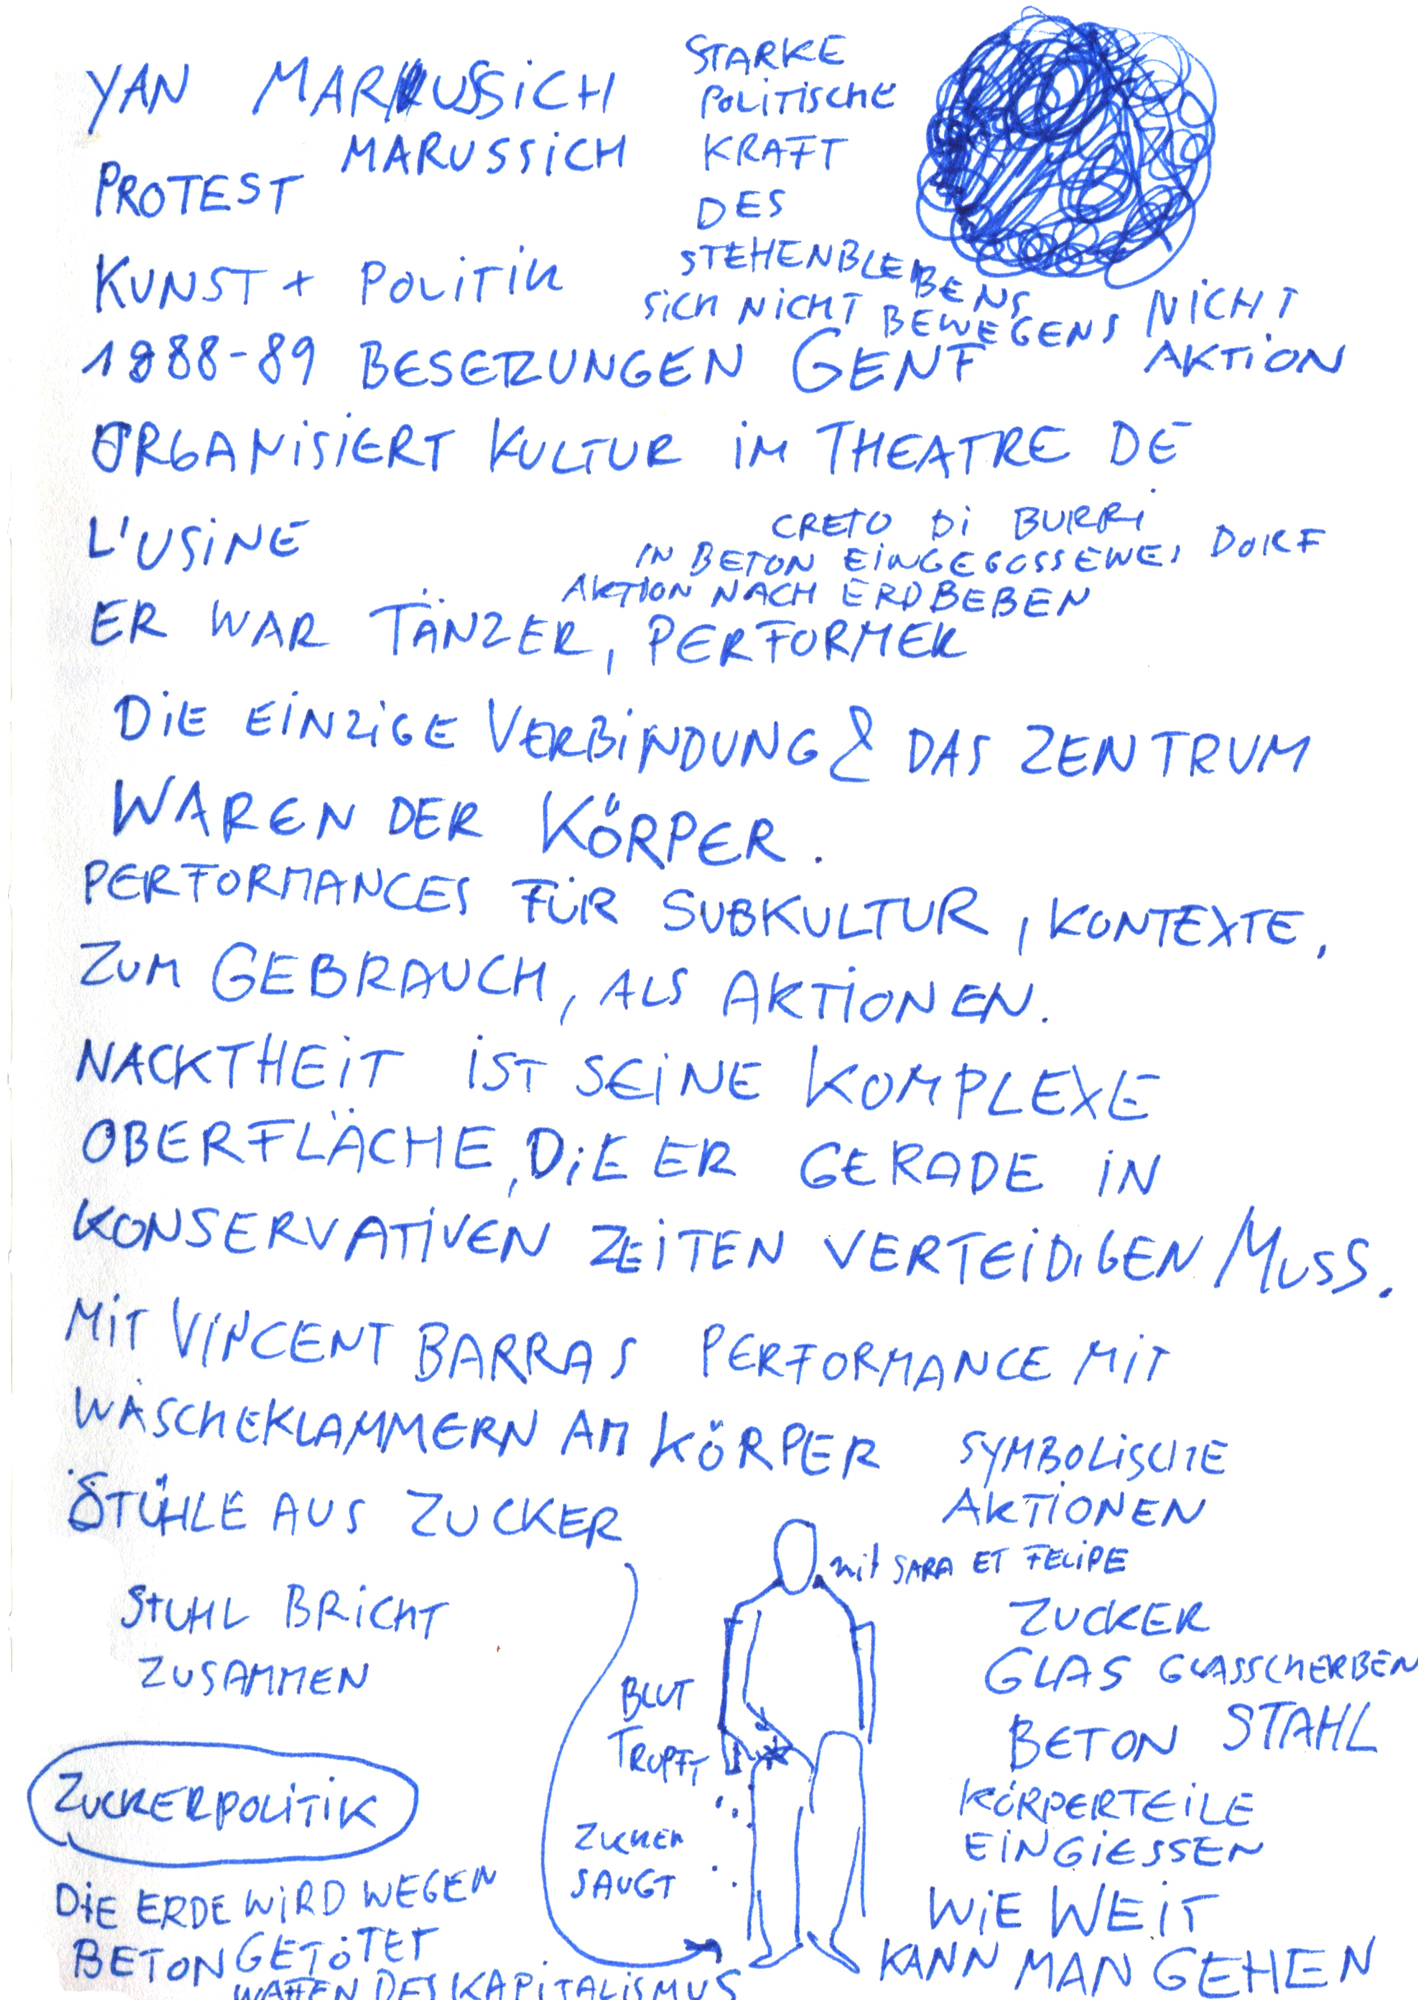 YAN MARUSSICH
MARUSSICH
PROTEST
KUNST + POLITIK
STARKE
POLITISCHE
KRAFT
DES
STEHENBLEIBENS
SICH NICHT BEWEGENS
NICHT
AKTION
1988-89 BESETZUNGEN GENF
ORGANISIERT KULTUR IM THEATRE DE
L'USINE
CRETO DI BURRI
IN BETON EINGEGOSSENES DORF
AKTION NACH ERDBEBEN
ER WAR TÄNZER, PERFORMER
DIE EINZIGE VERBINDUNG & DAS ZENTRUM
WAREN DER KÖRPER.
PERFORMANCES FÜR SUBKULTUR, KONTEXTE,
ZUM GEBRAUCH, ALS AKTIONEN.
NACKTHEIT IST SEINE KOMPLEXE
OBERFLÄCHE, DIE ER GERADE IN
KONSERVATIVEN ZEITEN VERTEIDIGEN MUSS.
MIT VINCENT BARRAS PERFORMANCE MIT
WÄSCHEKLAMMERN AM KÖRPER
STÜHLE AUS ZUCKER
STUHL BRICHT
ZUSAMMEN
SYMBOLISCHE
AKTIONEN
mit SARA ET FELIPE
ZUCKER
GLAS GLASSCHERBEN
BETON STAHL
KÖRPERTEILE
EINGIESSEN
WIE WEIT
KANN MAN GEHEN
BLUT
TROPFT
ZUCKER
SAUGT
ZUCKERPOLITIK
DIE ERDE WIRD WEGEN
BETON GETÖTET
WAFFEN DES KAPITALISMUS